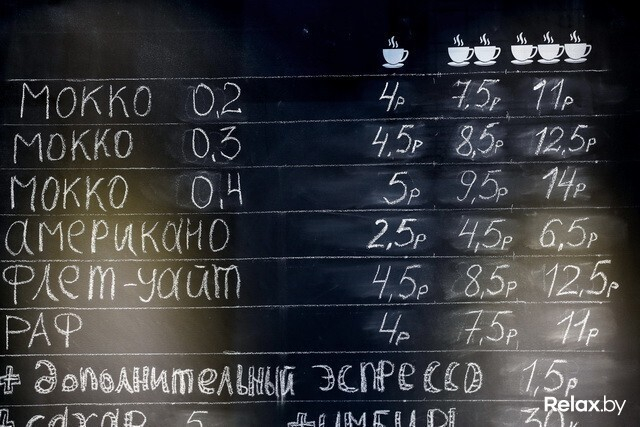 мокко 0,2 4р 7,5р 11р
мокко 0,3 4,5р 8,5р 12,5р
мокко 0,4 5р 9,5р 14р
американо 2,5р 4,5р 6,5р
флет-уайт 4,5р 8,5р 12,5р
РАФ 4р 7,5р 11р
+ дополнительный эспрессо 1,5р
+сахар 5 +имбирь 30к
Relax.by